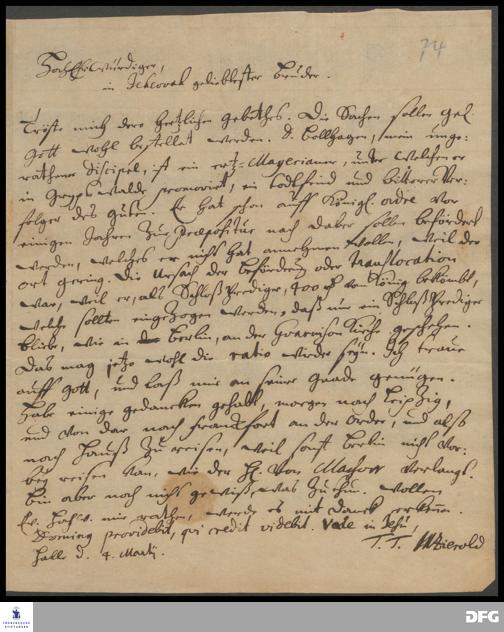 74
HochEhrwürdiger,
in Jehovah geliebtester Bruder.
Tröste mich dero hertzlichen gebethes. Die Sachen sollen gel.
Gott wohl bestellet werden. D. Bollhagen, mein unge-
rathener discipel, ist ein ertz-Mayerianer, unter welchen er
in Greyphswalde promovirt, ein todtfeind und bitterer Ver-
folger des guten. Er hat schon auff Königl. ordre vor
einigen Jahren zur Praepositur nach Daber sollen befördert
werden, welches er nicht hat annehmen wollen, weil der
ort gering. Die Ursach der beförderung oder translocation
war, weil er, als SchloßPrediger, 400 vom König bekömbt,
welche sollten eingezogen werden, daß nur ein SchloßPrediger
bliebe, wie in Berlin, an der Guarnison Kirche geschehen.
Das mag jetzo wohl die ratio wieder seyn. Ich traue
auff Gott, und laß mir an seiner Gnade genügen.
Habe einige gedancken gehabt, morgen nach Leipzig,
und von dar nach Franckfort an der Oder, und also
nach Hauß zu reisen, weil sonst Berlin nicht vor-
bey reisen kan, wie der H. von Massow verlangt.
Bin aber noch nicht gewiß, was zu thun. Wollen
Ew. HochE. mir rathen, werde es mit Danck erkennen.
Dominus providebit, qui credit videbit. Vale in Jesu,
Halle d. 4. Martij. T. T. MZierold
FRANCKESCHE
STIFTUNGEN
DFG